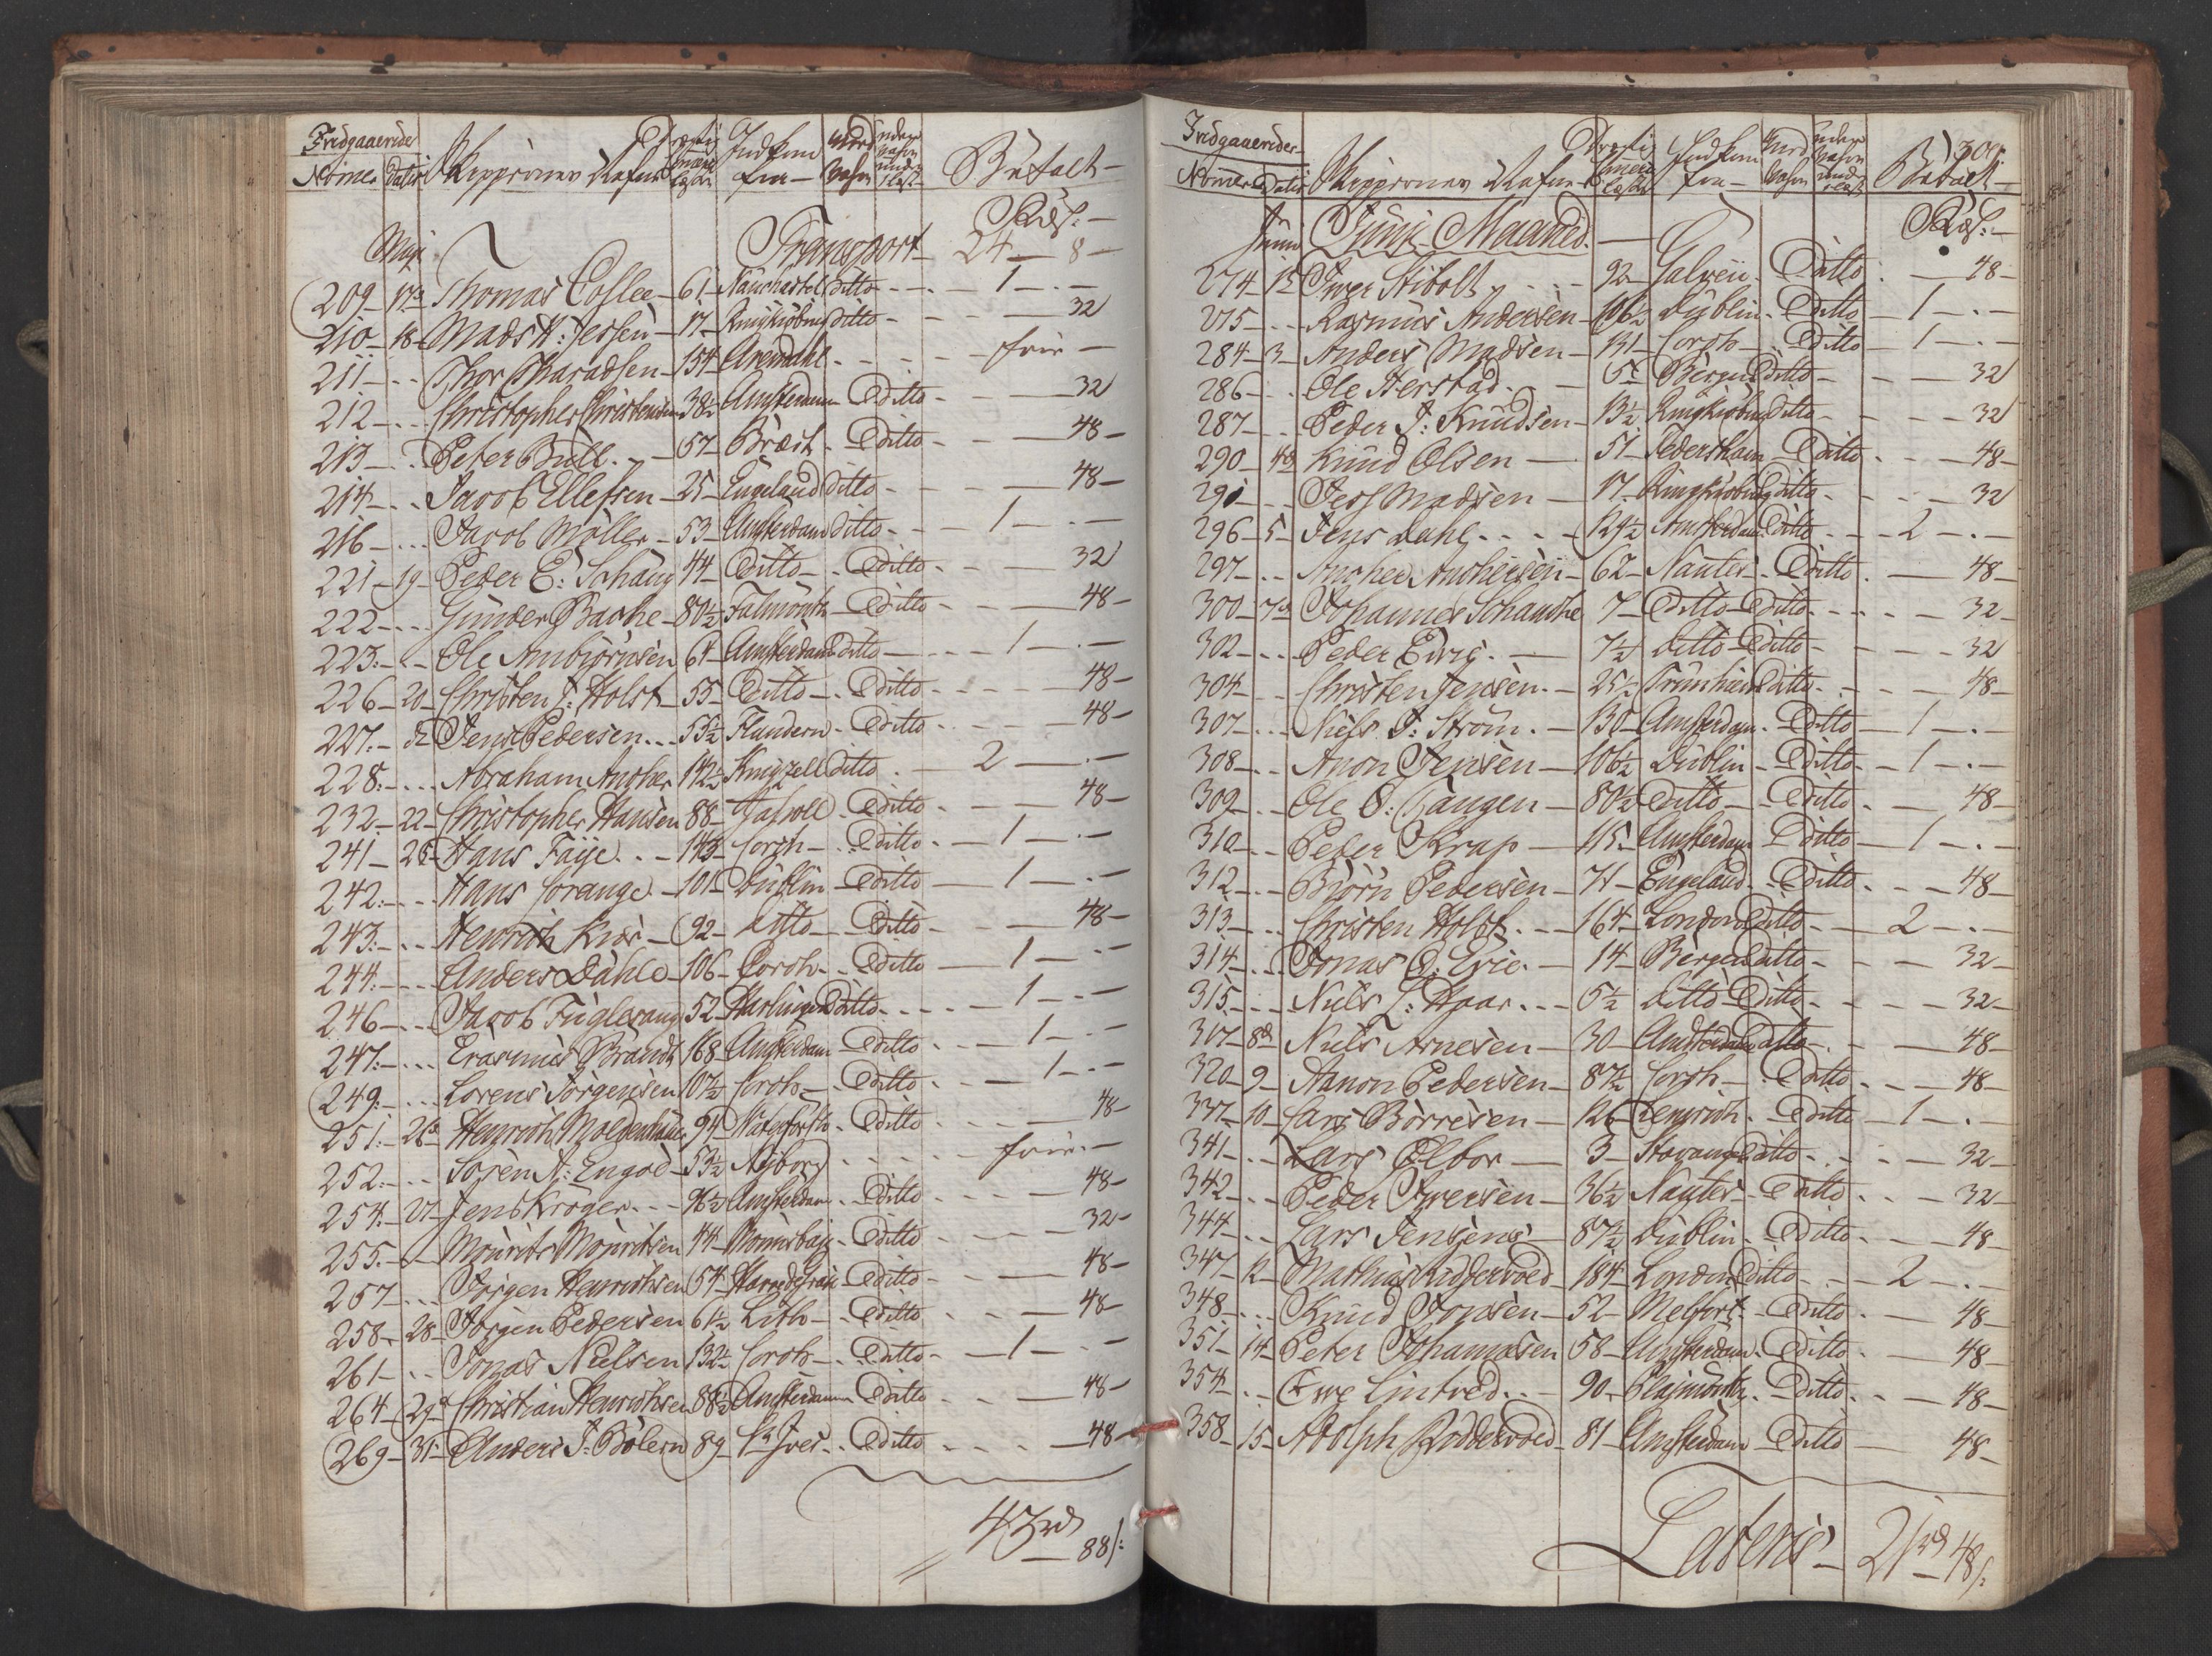 Indgaaende
Nomer Datis Skippernes Nafne Drægtig Comerce læster Indkom fra Betalt
Rdl: s
Maji Transport 24 8
209 17de Thomas Coslee 61 ditto 1
210 18 Mads N: Jessen 17 Ringkiøbing ditto 32
211 Thor Tharadsen 154 Arendahl frie
212 Christopher Christensen 38½ Amsterdam Ditto 32
213 Peter Bull 57 Bræst Ditto 48
214 Jacob Ellefsen 25 Engeland ditto 48
216 Jacob Møller 53 Amsterdam ditto 1
221 19 Peder E: Schaug 44 Ditto Ditto 32
222 Gunder Bache 80½ Falmouth Ditto 48
223 Ole Ambiørnsen 64 Amsterdam ditto 1
226 20 Christen J: Holst 55 Ditto Ditto 48
227 Jens Pedersen 55½ Flandern Ditto 48
228 Abraham Ancher 142½ ditto 2
232 22 Christopher Hansen 88 Ditto 48
241 Hans Faye 143 Corch Ditto 1
242 Hans Lorange 101 Dublin Ditto 1
243 Henrich Kiær 92 ditto Ditto 48
244 Anders Dahle 106 Corch Ditto 1
246 Jacob Fuglesang 52 Harlingen Ditto 1
247 Erasmus Brandt 168 Amsterdam Ditto 1
249 Lorens Jörgensen 107½ Corch Ditto 1
251 26 Henrich Moldenhauer 94 Waterforth Ditto 48
252 Sören A: Engod 53½ Nyborg frie
254 27 Jens Krøger 96½ Amsterdam Ditto 48
255 Mourits Mouritsen 44 Ditto 32
257 Jörgen Henrichsen 54 Ditto 48
258 28 Jörgen Pedersen 61½ Lith Ditto 48
261 Jonas Nielsen 132½ Corch Ditto 1
264 29 Christian Henrichsen 88½ Amsterdam Ditto 48
269 31 Anders J: Bölern 89 St Ives Ditto 48
43rd 88s:
Indgaaende
Nomer Datis Skippernes Nafne Drægtig Comerce læster Indkom fra Betalt
Rdl: s
Junii Junii Maaned
274 1st Iwer Stibolt 92 Galveii Ditto 48
275 Rasmus Andersen 106½ Dublin Ditto 1
284 3 Anders Madsen 131 Corch Ditto 1
286 Ole Herstad 5½ Bergen ditto 32
287 Peder J: Knudsen 13½ Ringkiøbing ditto 32
290 4de Knud Olsen 51 Ditto 48
291 Madsen 17 Ringkiøbing ditto 32
296 5 Jens Dahl 129½ Amsterdam Ditto 2
297 Ancher Anchersen 62 Nantes Ditto 48
300 7de Johannes Schanche 7 Ditto Ditto 32
302 Peder Ewig 7½ ditto Ditto 32
304 Christen Jensen 25½ Trunhiem Ditto 48
307 Niels J: Strøm 130 Amsterdam Ditto 1
308 Anon Jensen 106½ Dublin Ditto 1
309 Ole O: Hangen 80½ Ditto Ditto 48
310 Peter Krap 115 Amsterdam Ditto 1
312 Biørn Pedersen 71 Engeland Ditto 48
313 Christen Holst 164 London Ditto 2
314 Jonas D: Eric 14 Bergen ditto 32
315 Niels L: Haar 5½ ditto Ditto 32
317 8de Niels Arnesen 30 Amsterdam ditto 48
320 9 Aanon Pedersen 87½ Corch Ditto 48
337 10 Lars Börresen 126 Lemrich Ditto 1
341 Lars Elbor 3 Stavanger Ditto 32
342 Peder Iwersen 36½ Nantes Ditto 32
344 Lars Jensen 87½ Dublin Ditto 48
347 12 Mathias Ridderwold 184 London Ditto 2
348 Knud Jonsen 52 Melfort Ditto 48
351 14 Peter Johannesen 58 Amsterdam Ditto 48
354 Ewe Lintved 90 Plaimouth Ditto 48
358 15 Adolph Ridderwold 81 Amsterdam Ditto 48
Lateris 21rd 48s: